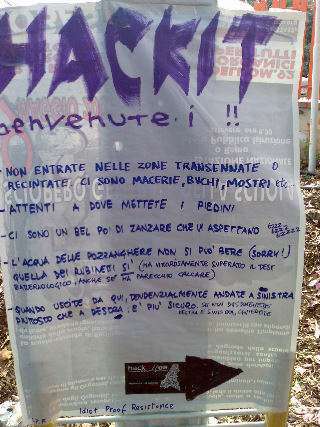 HACKIT
benvenute.i !!
- NON ENTRATE NELLE ZONE TRANSENNATE O
RECINTATE, CI SONO MACERIE, BUCHI, MOSTRI etc..
- ATTENTI A DOVE METTETE I PIEDINI
- CI SONO UN BEL PO' DI ZANZARE CHE VI ASPETTANO
- L'ACQUA DELLE POZZANGHERE NON SI PUO' BERE (SORRY!)
QUELLA DEI RUBINETTI SI' (HA VIGOROSAMENTE SUPERATO IL TEST
BATTERIOLOGICO, ANCHE SE HA PARECCHIO CALCARE)
- QUANDO USCITE DA QUI, TENDENZIALMENTE ANDATE A SINISTRA
PIUTOSTO CHE A DESTRA. E' PIU' SICURO.
hack
Idiot Proof Resistence